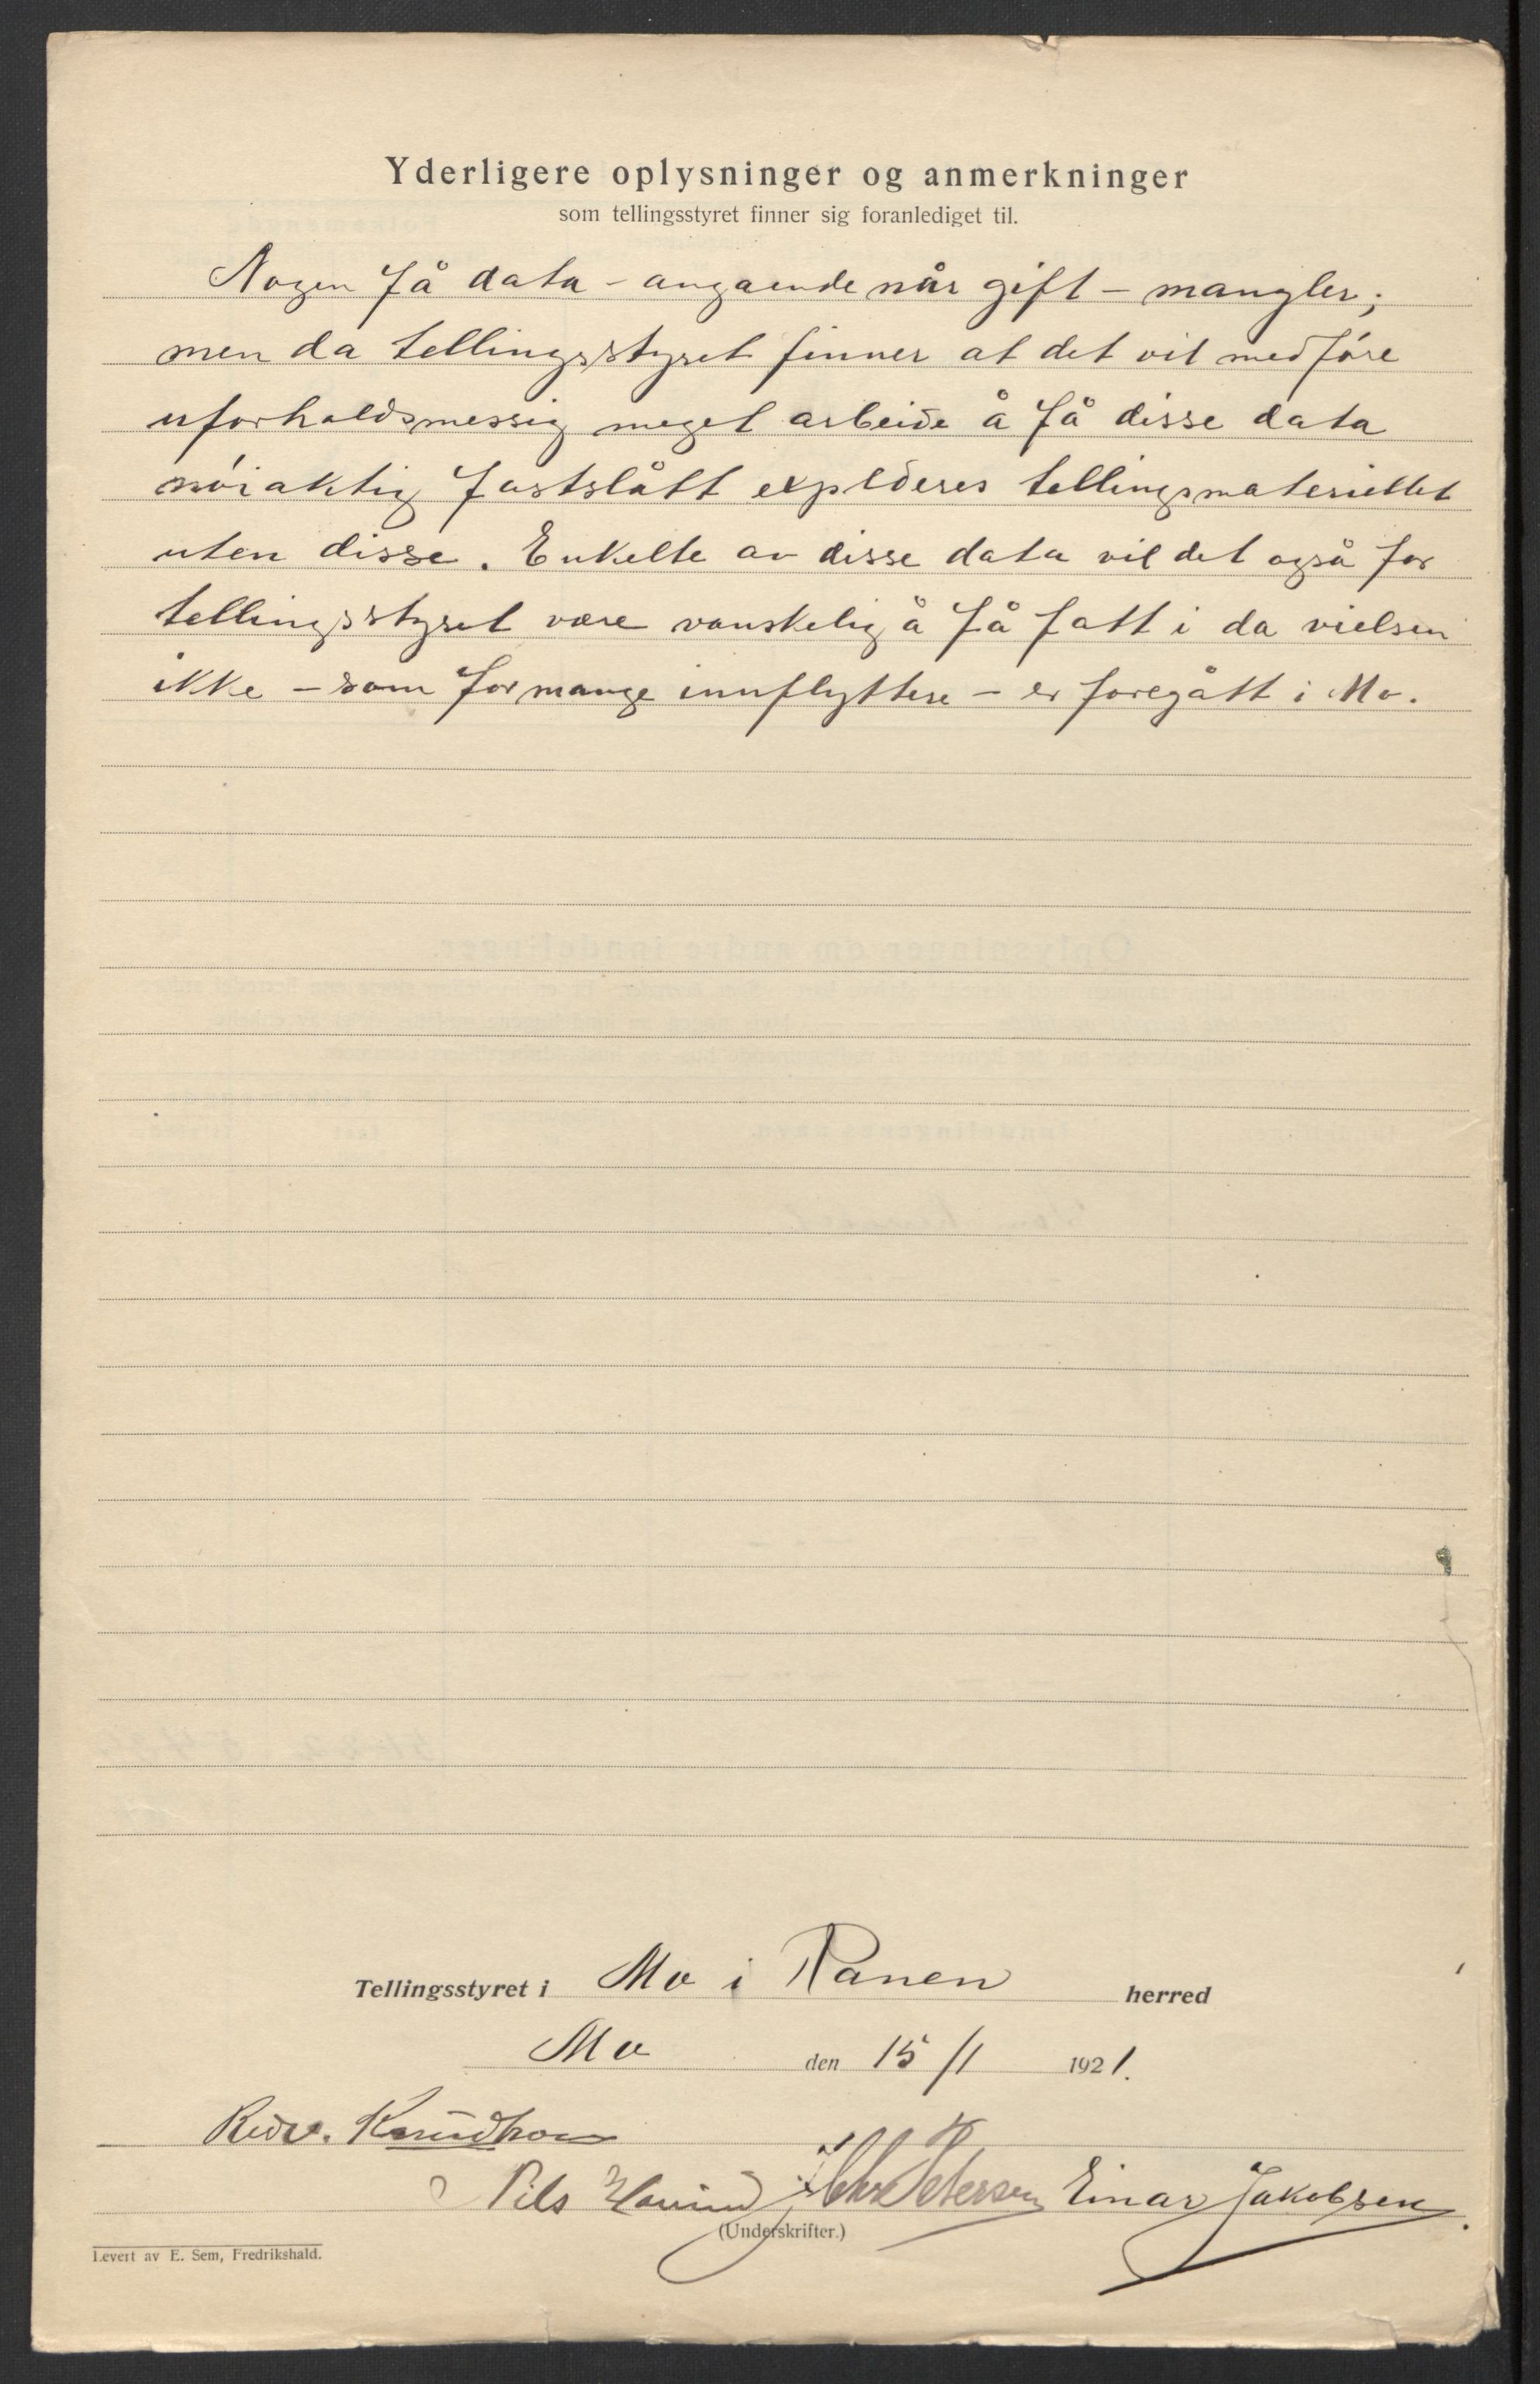 Yderligere oplysninger og anmerkninger
som tellingsstyret finner sig foranlediget til.
Nogen få data - angaende når gift - mangler;
men da tellingsstyret finner at det vil medføre
uforholdsmessig meget arbeide å få disse data
nøiaktig fastslått expideres tellingsmateriellet
uten disse. Enkelte av disse data vil det også for
tellingsstyret være vanskelig å få fatt i da vielsen
ikke - som for mange innflyttere - er foregått i Mo.
Tellingsstyret i Mo i Ranen herred
Mo den 15/1 1921.
Nils Petersen Einar Jakobsen
(Underskrifter.)
Levert av E. Sem, Fredrikshald.